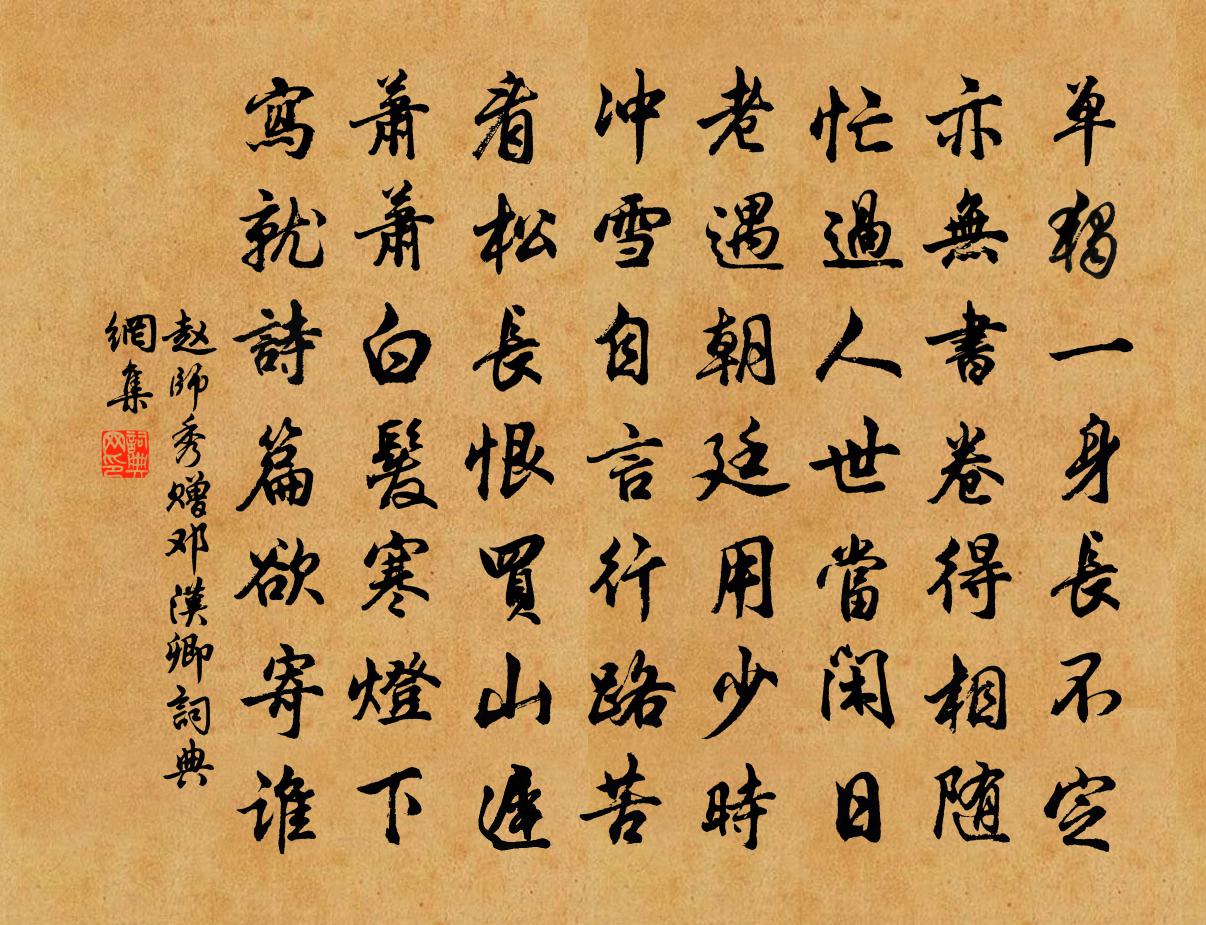 单獨一身長不定
亦無書卷得相随
忙過人世當閑日
老遇朝廷用少時
冲雪自言行路苦
看松長恨買山遲
蕭蕭白髮寒燈下
寫就詩篇欲寄谁
赵師秀赠邓漢卿詞典
網集
詞典
网印